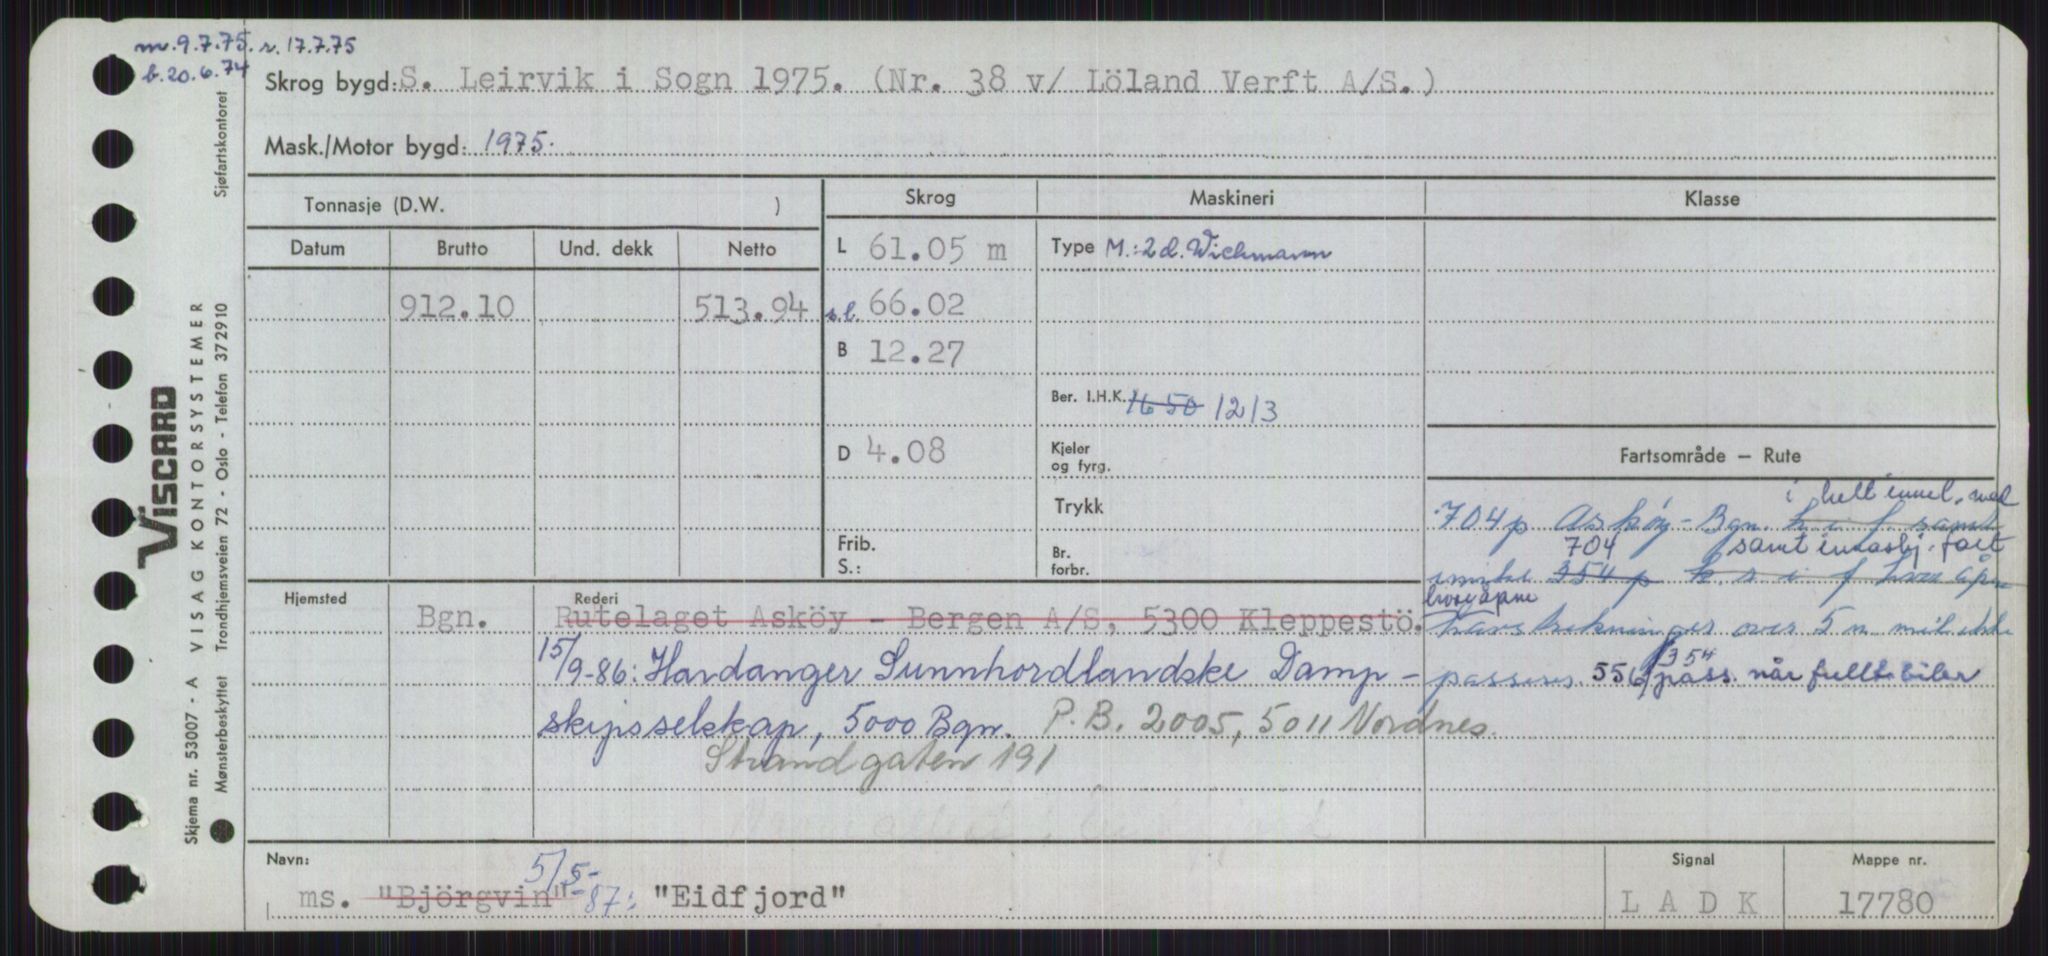 m. 9.7.75. r. 17.7.75
b. 20.6.74
Skrog bygd: S. Leirvik i Sogn 1975. (Nr. 38 v/ Löland Verft A/S.)
Mask./Motor bygd: 1975.
Tonnasje (D.W. )
Skrog
Maskineri
Klasse
Datum Brutto Und. dekk Netto
L 61.05 m
Type M.: 2 d. Wichmann
912.10 513.94
s.l. 66.02
B 12.27
Ber. I.H.K. 1650 1213
D 4.08
Kjeler
og fyrg.
Trykk
Frib.
S.:
Br.
forbr.
Fartsområde – Rute
i helt innel. med
704 p Asköy - Bgn. samt
704 samt innaskj. fart
354 p
hvor åpne
havstrekninger over 5 n mil ikke
354
passeres 556 pass når fullt biler
Hjemsted
Bgn.
Rederi
Rutelaget Asköy - Bergen A/S, 5300 Kleppestö.
15/9-86: Hardanger Sunnhordlandske Damp-
skipsselskap, 5000 Bgn. P.B. 2005, 5011 Nordnes.
Strandgaten 191
Navn:
ms. "Björgvin" 5/5-87: "Eidfjord"
Signal
L A D K
Mappe nr.
17780
Sjøfartskontoret
VISCARD
VISAG KONTORSYSTEMER
Trondhjemsveien 72 - Oslo - Telefon 372910
Skjema nr. 53007 - A
Mønsterbeskyttet